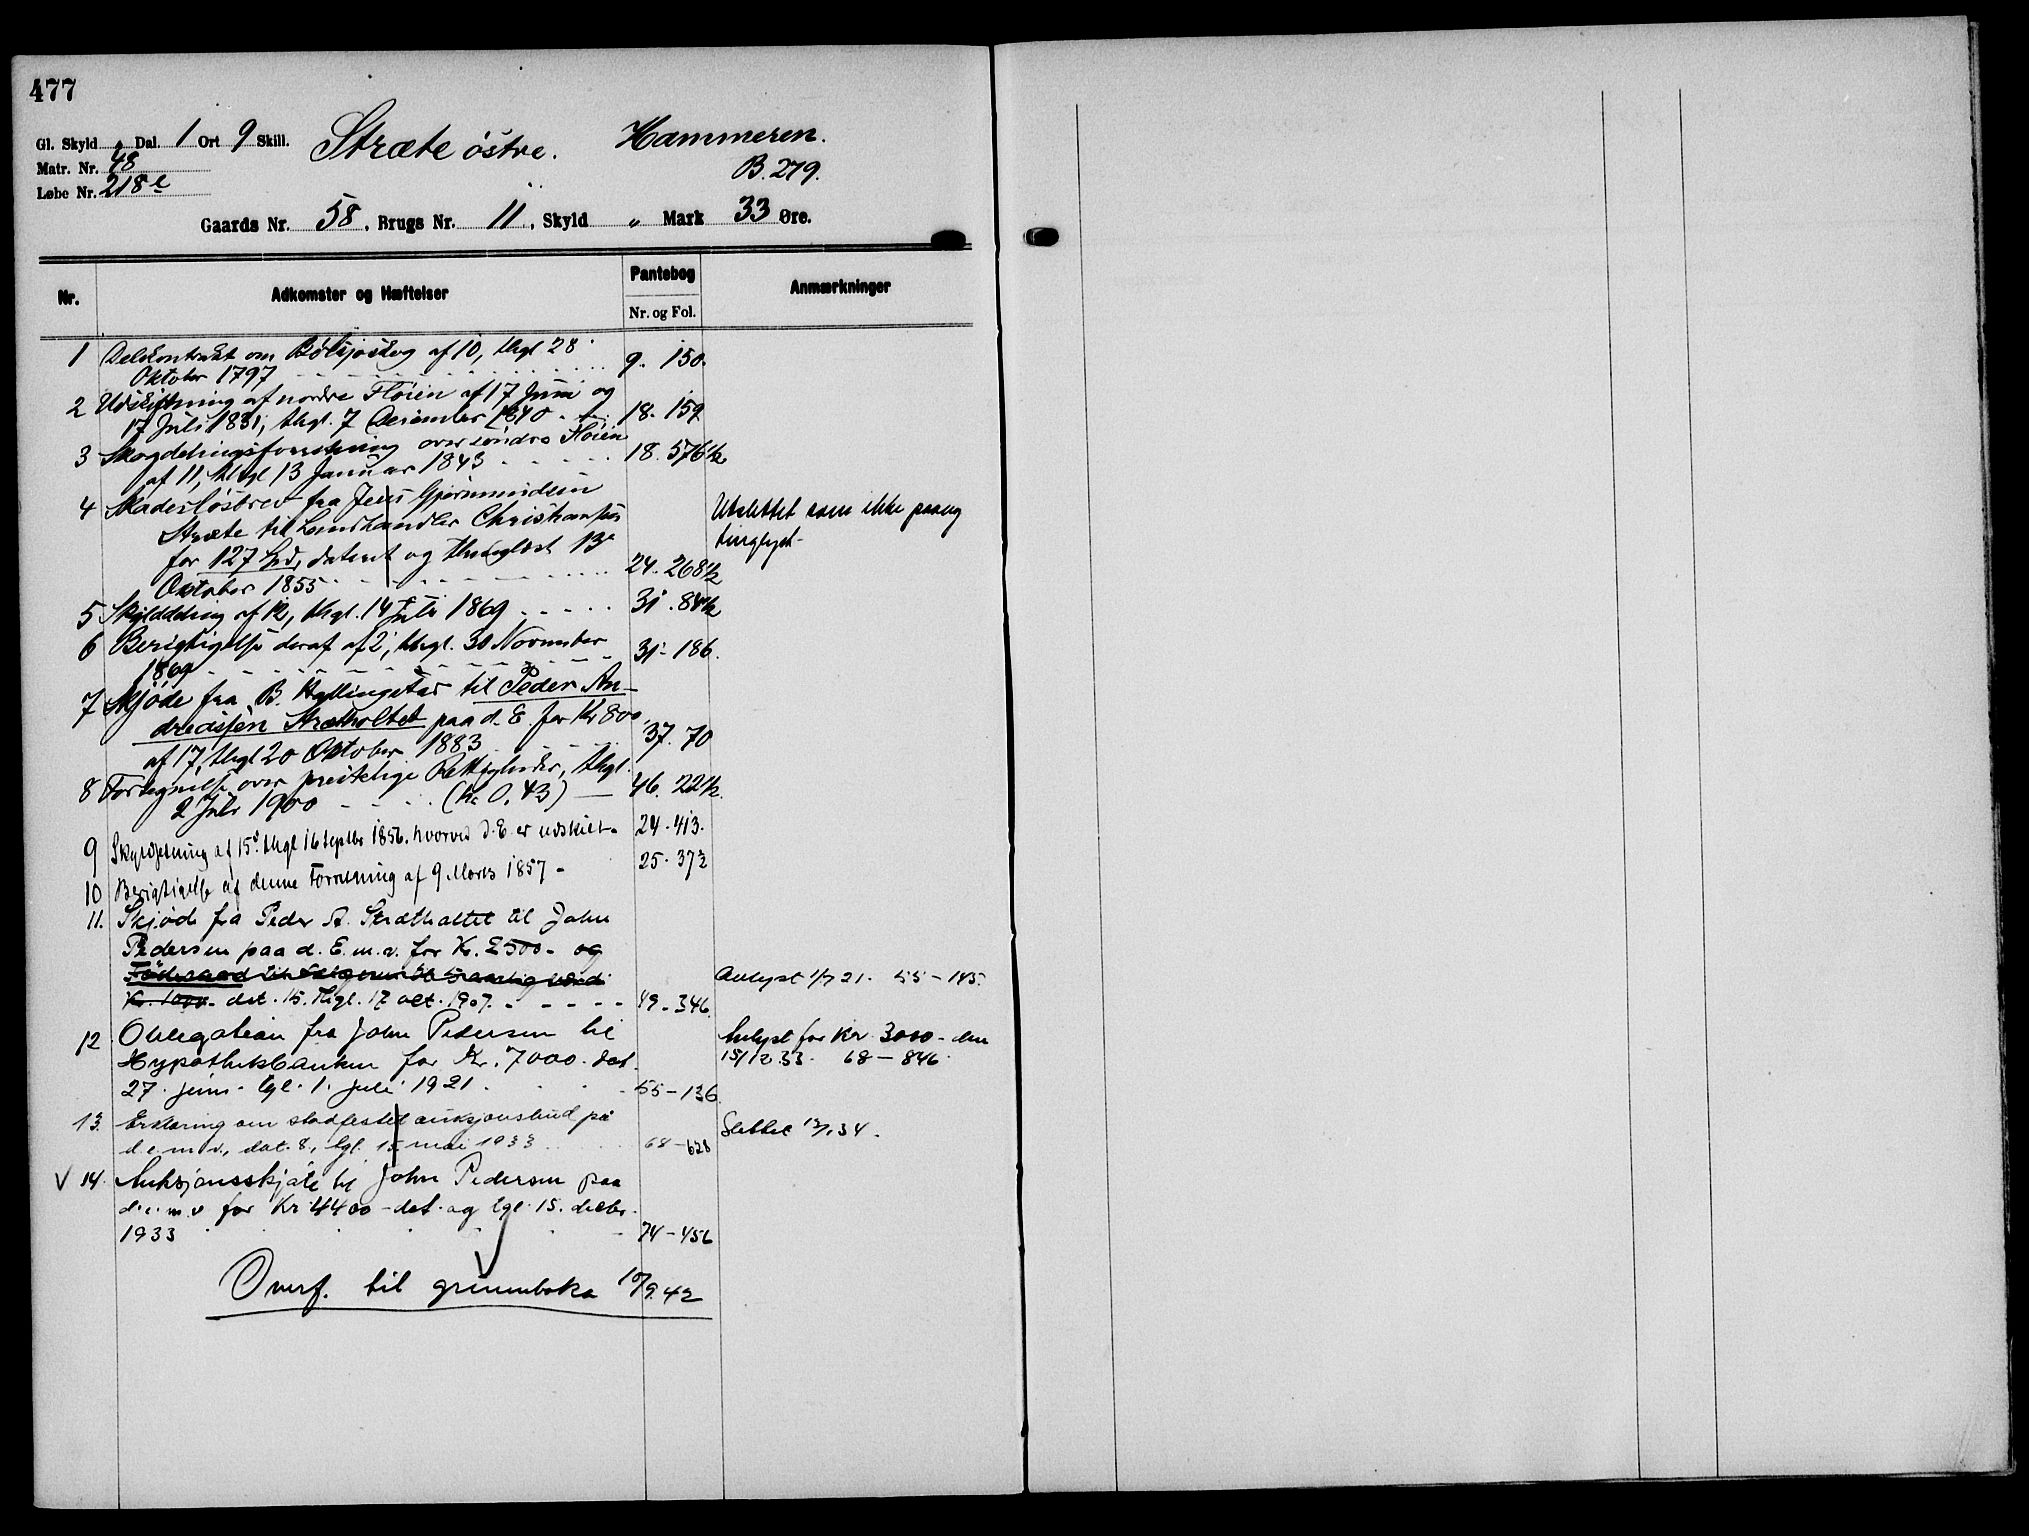 477
Gl. Skyld „ Dal. 1 Ort 9 Skill. Stræte østre. Hammeren.
Matr. Nr. 48 B. 279.
Løbe Nr. 218e
Gaards Nr. 58, Brugs Nr. 11, Skyld „ Mark 33 Øre.
Nr. Adkomster og Hæftelser Pantebog Anmærkninger
Nr. og Fol.
1 Delekontrakt om Bölsjoskog af 10, thgl 28
Oktober 1797 9. 150.
2 Udskiftning af nordre Flöien af 17 Juni og
17 Juli 1831, thgl. 7 December 1840 18. 159
3 Skogdelingsforretning over söndre Flöien
af 11, thgl 13 Januar 1843 18. 576½
4 Skadeslösbrev fra Jens Gjermundsen Utslettet som ikke paany
Stræte til Landhandler Christiansen tinglyst.
for 127 Spd, dateret og thinglæst 13
Oktober 1855 24. 268½
5 Skylddeling af 12, thgl. 14 Juli 1869 31. 84½
6 Berigtigelse deraf af 2, thgl. 30 November
1869 31. 186.
7 Skjöde fra B. Hyllingstad til Peder An-
dreassen Strætholtet paa d. E. for Kr 800,
af 17, thgl 20 Oktober 1883 37. 70
8 Fortegnelse over prestelige Rettigheder, thgl.
2 Juli 1900 (Kr 0,43) 46. 22½.
9 Skyldsetning af 15, thgl 16 septbr 1856, hvorved d. E. er udskilt 24. 413.
10 Berigtigelse af denne Forretning af 9 Marts 1857 25. 37½
11. Skjøde fra Peder A. Strætholtet til John
Pedersen paa d. E. m. v. for Kr. 2500 og
Føderaad til Sælgeren af 5 aarlig værdi Avlyst 1/7 21. 55–145.
Kr. 1000. dat. 15. thgl. 17 okt. 1907. 49–346.
12 Obligation fra John Pedersen til Avlyst for Kr 3000 – den
Hypothekbanken for Kr. 7000. dat. 15/12 33. 68–846.
27. juni. tgl. 1. juli 1921 55–136.
13. Erklæring om stadfestet auksjonsbud på Slettet 12/1 34.
d. e. m. v., dat. 8, tgl. 15 mai 1933 68–628
V 14. Auksjonsskjøte til John Pedersen paa
d. e. m. v for Kr 4400 – dat. og tgl. 15. decbr.
1933 74–456
Overf. til grunnboka 10/9.42